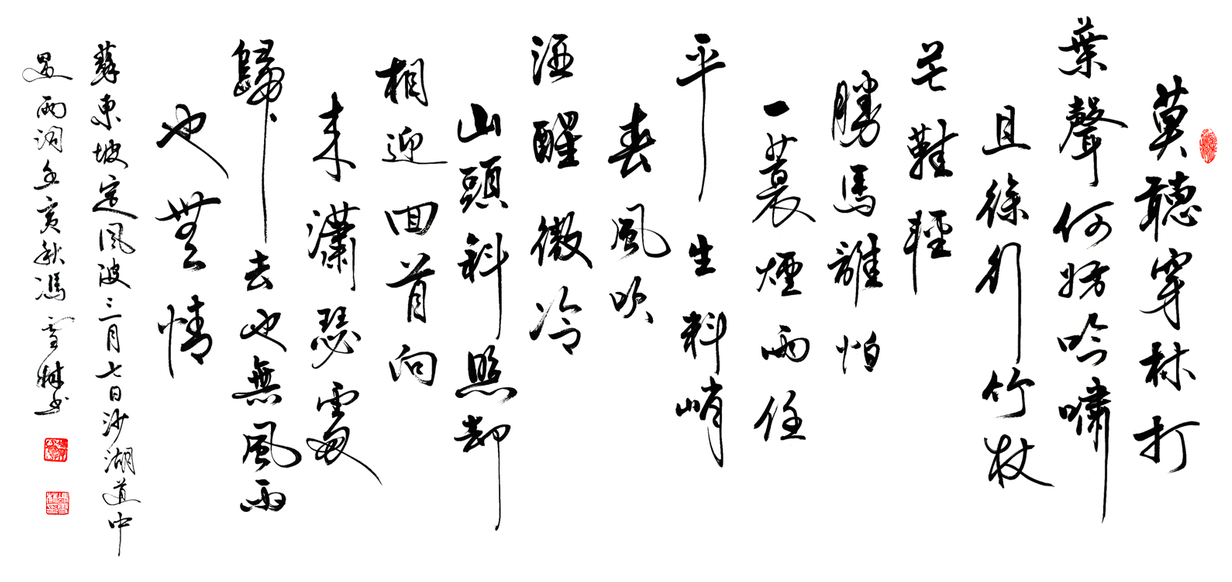 莫聽穿林打
葉聲何妨吟嘯
且徐行竹杖
芒鞋輕
勝馬誰怕
一蓑煙雨任
平生料峭
春風吹
酒醒微冷
山頭斜照卻
相迎回首向
来瀟瑟處
歸去也無風雨
也無情
蘇東坡定風波三月七日沙湖道中
遇雨詞壬寅秋馮雪林书